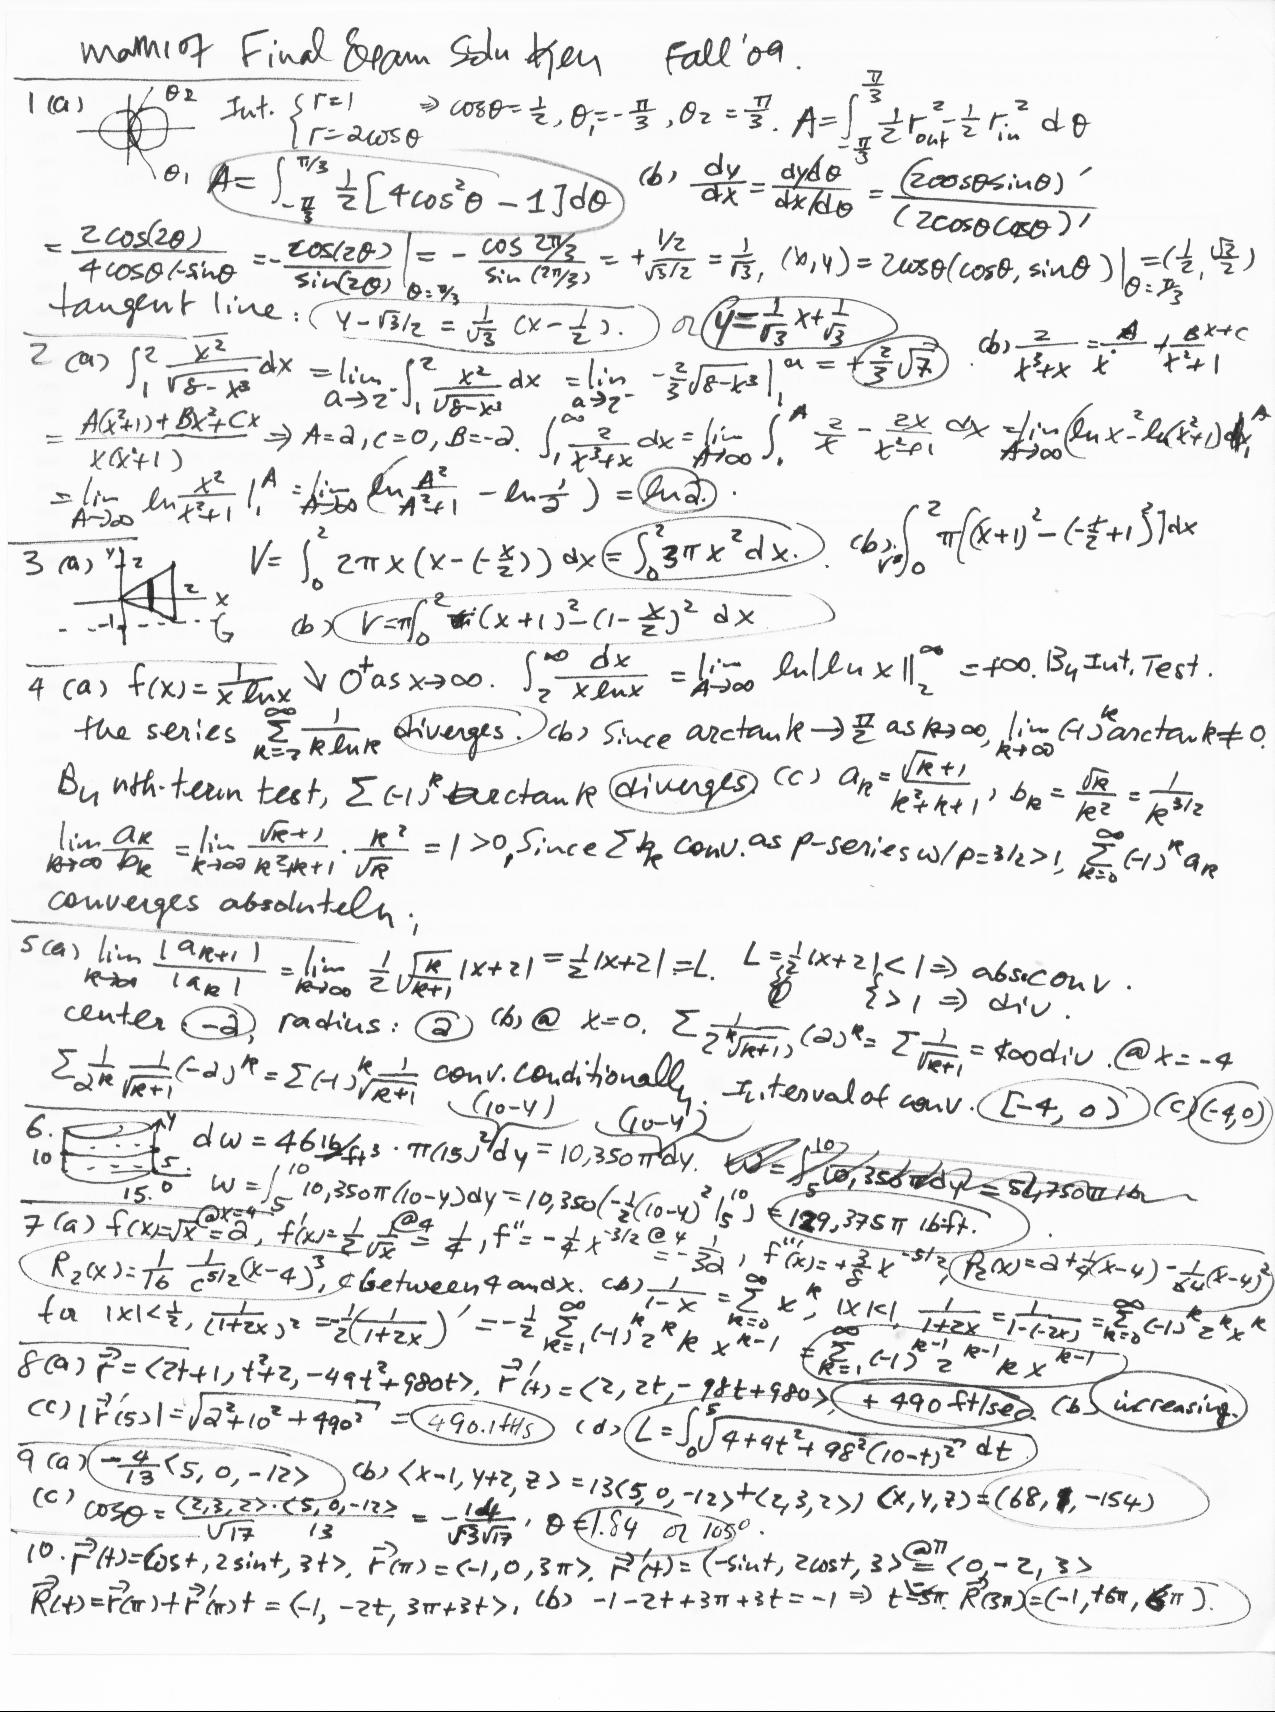 Math107 Final Exam Soln Key Fall'09.
1 (a) θ2 Int. { r=1 r=2cosθ ⇒ cosθ=1/2, θ₁=-π/3, θ2=π/3. A=∫_{-π/3}^{π/3} 1/2 r²_out - 1/2 r²_in dθ
θ₁ A=∫_{-π/3}^{π/3} 1/2[4cos²θ-1]dθ (b) dy/dx = (dy/dθ)/(dx/dθ) = (2cosθsinθ)'/(2cosθcosθ)'
= 2cos(2θ)/4cosθ(-sinθ) = -cos(2θ)/sin(2θ)|_{θ=π/3} = -cos 2π/3/sin(2π/3) = +(1/2)/(√3/2) = 1/√3, (x,y)=2cosθ(cosθ, sinθ)|_{θ=π/3} = (1/2, √3/2)
tangent line: y-√3/2 = 1/√3 (x-1/2). or y=1/√3 x+1/√3
2 (a) ∫₁² x²/√(8-x³) dx = lim_{a→2⁻} ∫₁² x²/√(8-x³) dx = lim_{a→2⁻} -2/3 √(8-x³)|₁ᵃ = +2/3 √7. (b) 2/(x³+x) = A/x + (Bx+C)/(x²+1)
= (A(x²+1)+Bx²+Cx)/(x(x²+1)) ⇒ A=2, C=0, B=-2. ∫₁^∞ 2/(x³+x) dx = lim_{A→∞} ∫₁^A 2/x - 2x/(x²+1) dx = lim_{A→∞} (ln x² - ln(x²+1))|₁^A
= lim_{A→∞} ln x²/(x²+1)|₁^A = lim_{A→∞} (ln A²/(A²+1) - ln 1/2) = ln2.
3 (a) y 2 2 x -1 V=∫₀² 2πx(x-(-x/2))dx = ∫₀² 3πx²dx. (b) V=∫₀² π[(x+1)²-(-x/2+1)²]dx
(b) V=π∫₀² (x+1)²-(1-x/2)² dx
4 (a) f(x)=1/(x ln x) ↘ 0⁺ as x→∞. ∫₂^∞ dx/(x ln x) = lim_{A→∞} ln|ln x||₂^∞ = +∞. By Int. Test.
the series Σ_{k=2}^∞ 1/(k ln k) diverges. (b) Since arctan k → π/2 as k→∞, lim_{k→∞} (-1)^k arctan k ≠ 0.
By nth-term test, Σ(-1)^k arctan k diverges (c) a_k=(√k+1)/(k²+k+1), b_k=√k/k² = 1/k^{3/2}
lim_{k→∞} a_k/b_k = lim_{k→∞} (√k+1)/(k²+k+1) · k²/√k = 1>0, Since Σb_k conv. as p-series w/ p=3/2>1, Σ_{k=0}^∞ (-1)^k a_k
converges absolutely.
5 (a) lim_{k→∞} |a_{k+1}|/|a_k| = lim_{k→∞} 1/2 √(k/(k+1)) |x+2| = 1/2|x+2| = L. L=1/2|x+2| { <1 ⇒ abs. conv. >1 ⇒ div.
center: -2, radius: 2 (b) @ x=0. Σ 1/(2^k √(k+1)) (2)^k = Σ 1/√(k+1) = +∞ div. @ x=-4
Σ 1/2^k 1/√(k+1) (-2)^k = Σ(-1)^k 1/√(k+1) conv. conditionally. Interval of conv. [-4, 0) (c) (-4,0)
(10-y) (10-y)
6. y 10 5 0 15. dw = 46 lb/ft³ · π(15)²dy = 10,350πdy. W=∫₅¹⁰ 10,350πdy = 51,750π lb
W=∫₅¹⁰ 10,350π(10-y)dy = 10,350(-1/2(10-y)²|₅¹⁰) = 129,375π lb-ft.
7 (a) f(x)=√x @x=4 = 2, f'(x)=1/2 1/√x @4 = 1/4, f''=-1/4 x^{-3/2} @4 = -1/32, f'''(x)=+3/8 x^{-5/2}, P₂(x)=2+1/4(x-4)-1/64(x-4)²
R₂(x)=1/16 1/c^{5/2} (x-4)³, c between 4 and x. (b) 1/(1-x) = Σ_{k=0}^∞ x^k, |x|<1, 1/(1+2x) = 1/(1-(-2x)) = Σ_{k=0}^∞ (-1)^k 2^k x^k
for |x|<1/2, 1/(1+2x)² = -1/2(1/(1+2x))' = -1/2 Σ_{k=1}^∞ (-1)^k 2^k k x^{k-1} = Σ_{k=1}^∞ (-1)^{k-1} 2^{k-1} k x^{k-1}
8 (a) r⃗=⟨2t+1, t²+2, -49t²+980t⟩. r⃗'(t)=⟨2, 2t, -98t+980⟩, +490 ft/sec. (b) increasing.
(c) |r⃗'(5)|=√(2²+10²+490²) = 490.1 ft/s (d) L=∫₀⁵ √(4+4t²+98²(10-t)²) dt
9 (a) -4/13 ⟨5, 0, -12⟩ (b) ⟨x-1, y+2, z⟩ = 13⟨5, 0, -12⟩+⟨2,3,2⟩) (x,y,z)=(68, 1, -154)
(c) cosθ=⟨2,3,2⟩·⟨5,0,-12⟩/√17 13 = -14/√3√17, θ=1.84 or 105°.
10. r⃗(t)=⟨cost, 2sint, 3t⟩. r⃗(π)=⟨-1, 0, 3π⟩. r⃗'(t)=⟨-sint, 2cost, 3⟩ @π = ⟨0,-2, 3⟩
R⃗(t)=r⃗(π)+r⃗'(π)t = ⟨-1, -2t, 3π+3t⟩, (b) -1-2t+3π+3t=-1 ⇒ t=-3π. R⃗(3π)=(-1,+6π,-6π).